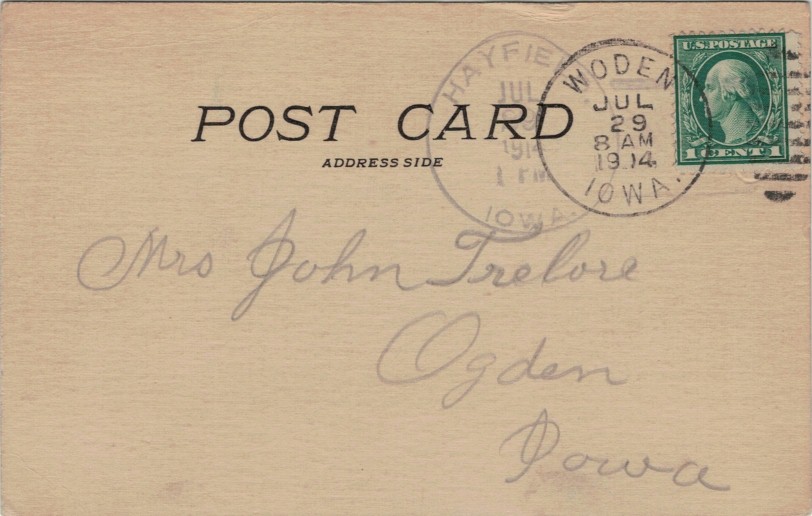 HAYFIE
JUL
1914
1 PM
IOWA.
WODEN
JUL
29
8 AM
1914
IOWA.
U.S. POSTAGE
1 CENT 1
POST CARD
ADDRESS SIDE
Mrs John Trelore
Ogden
Iowa